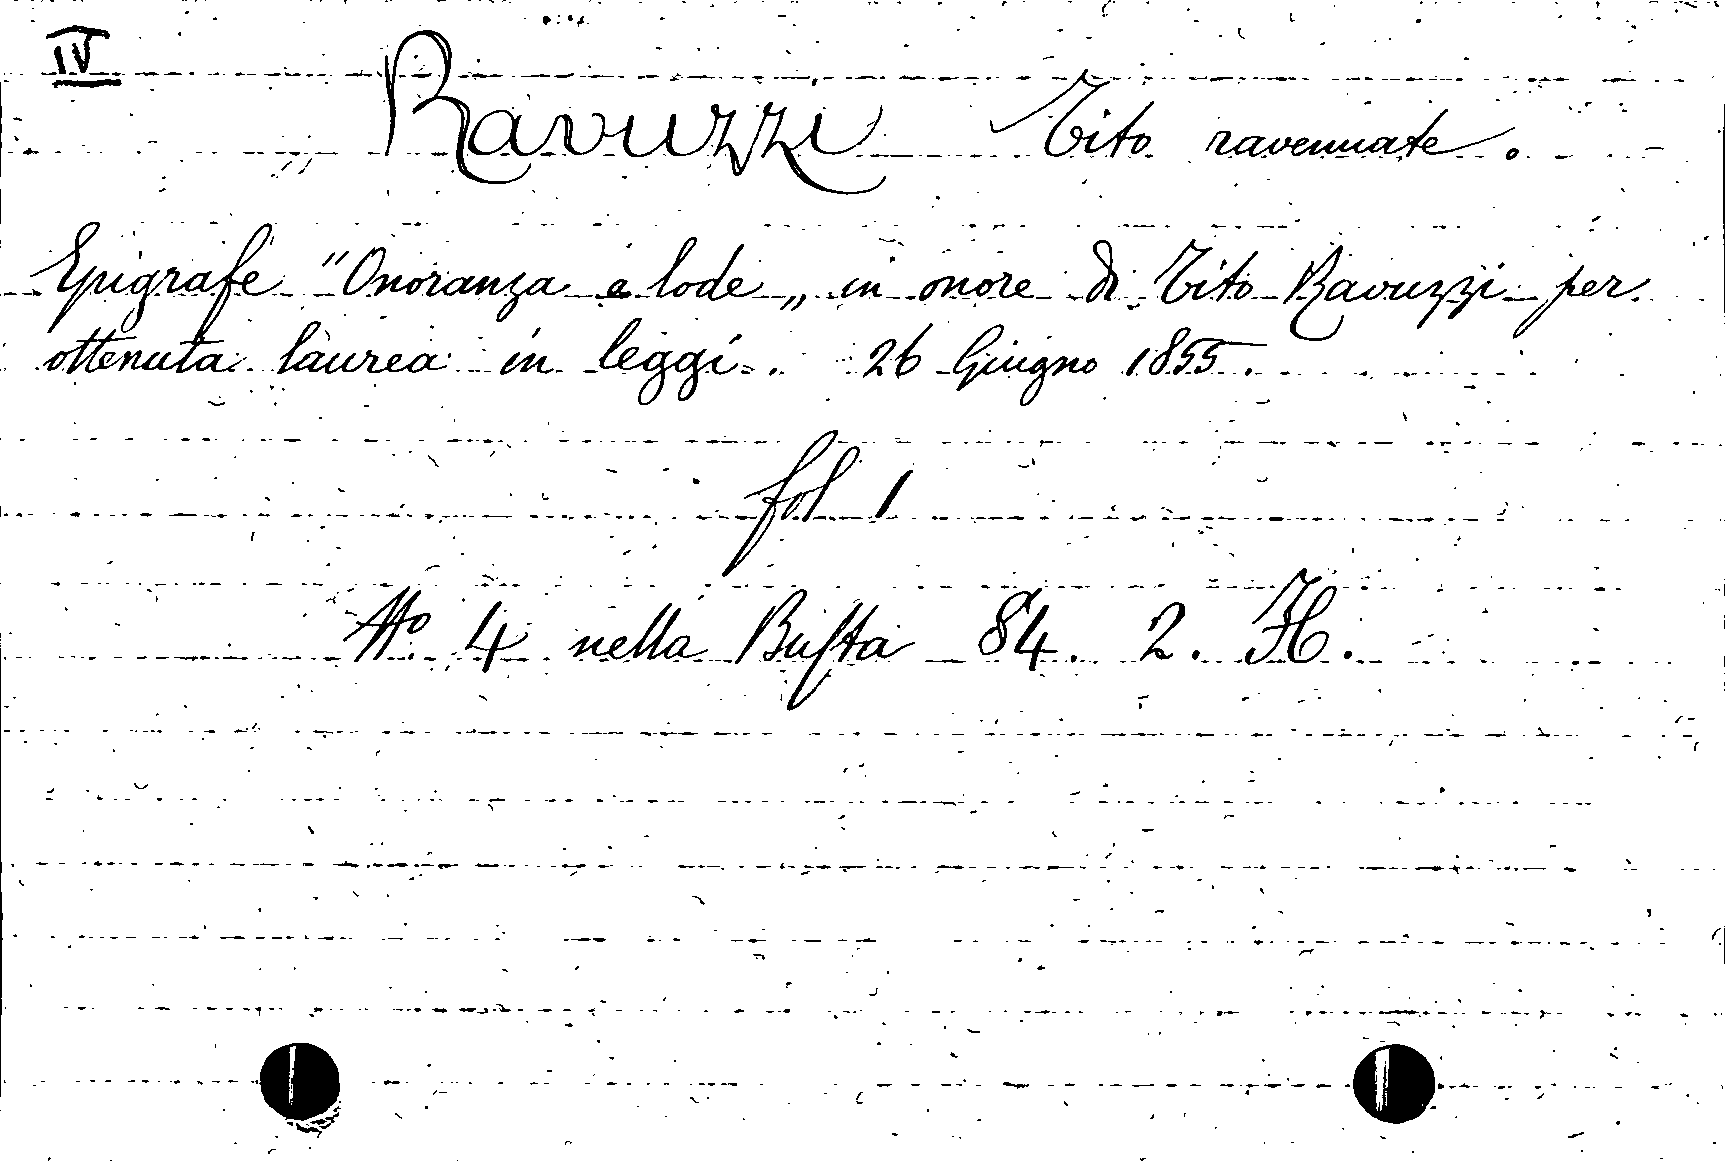 IV
Ravuzzi Tito ravennate.
Epigrafe "Onoranza e lode„ in onore di Tito Ravuzzi per
ottenuta laurea in leggi. 26 Giugno 1855.
fol 1
No 4 nella Busta 84. 2. H.